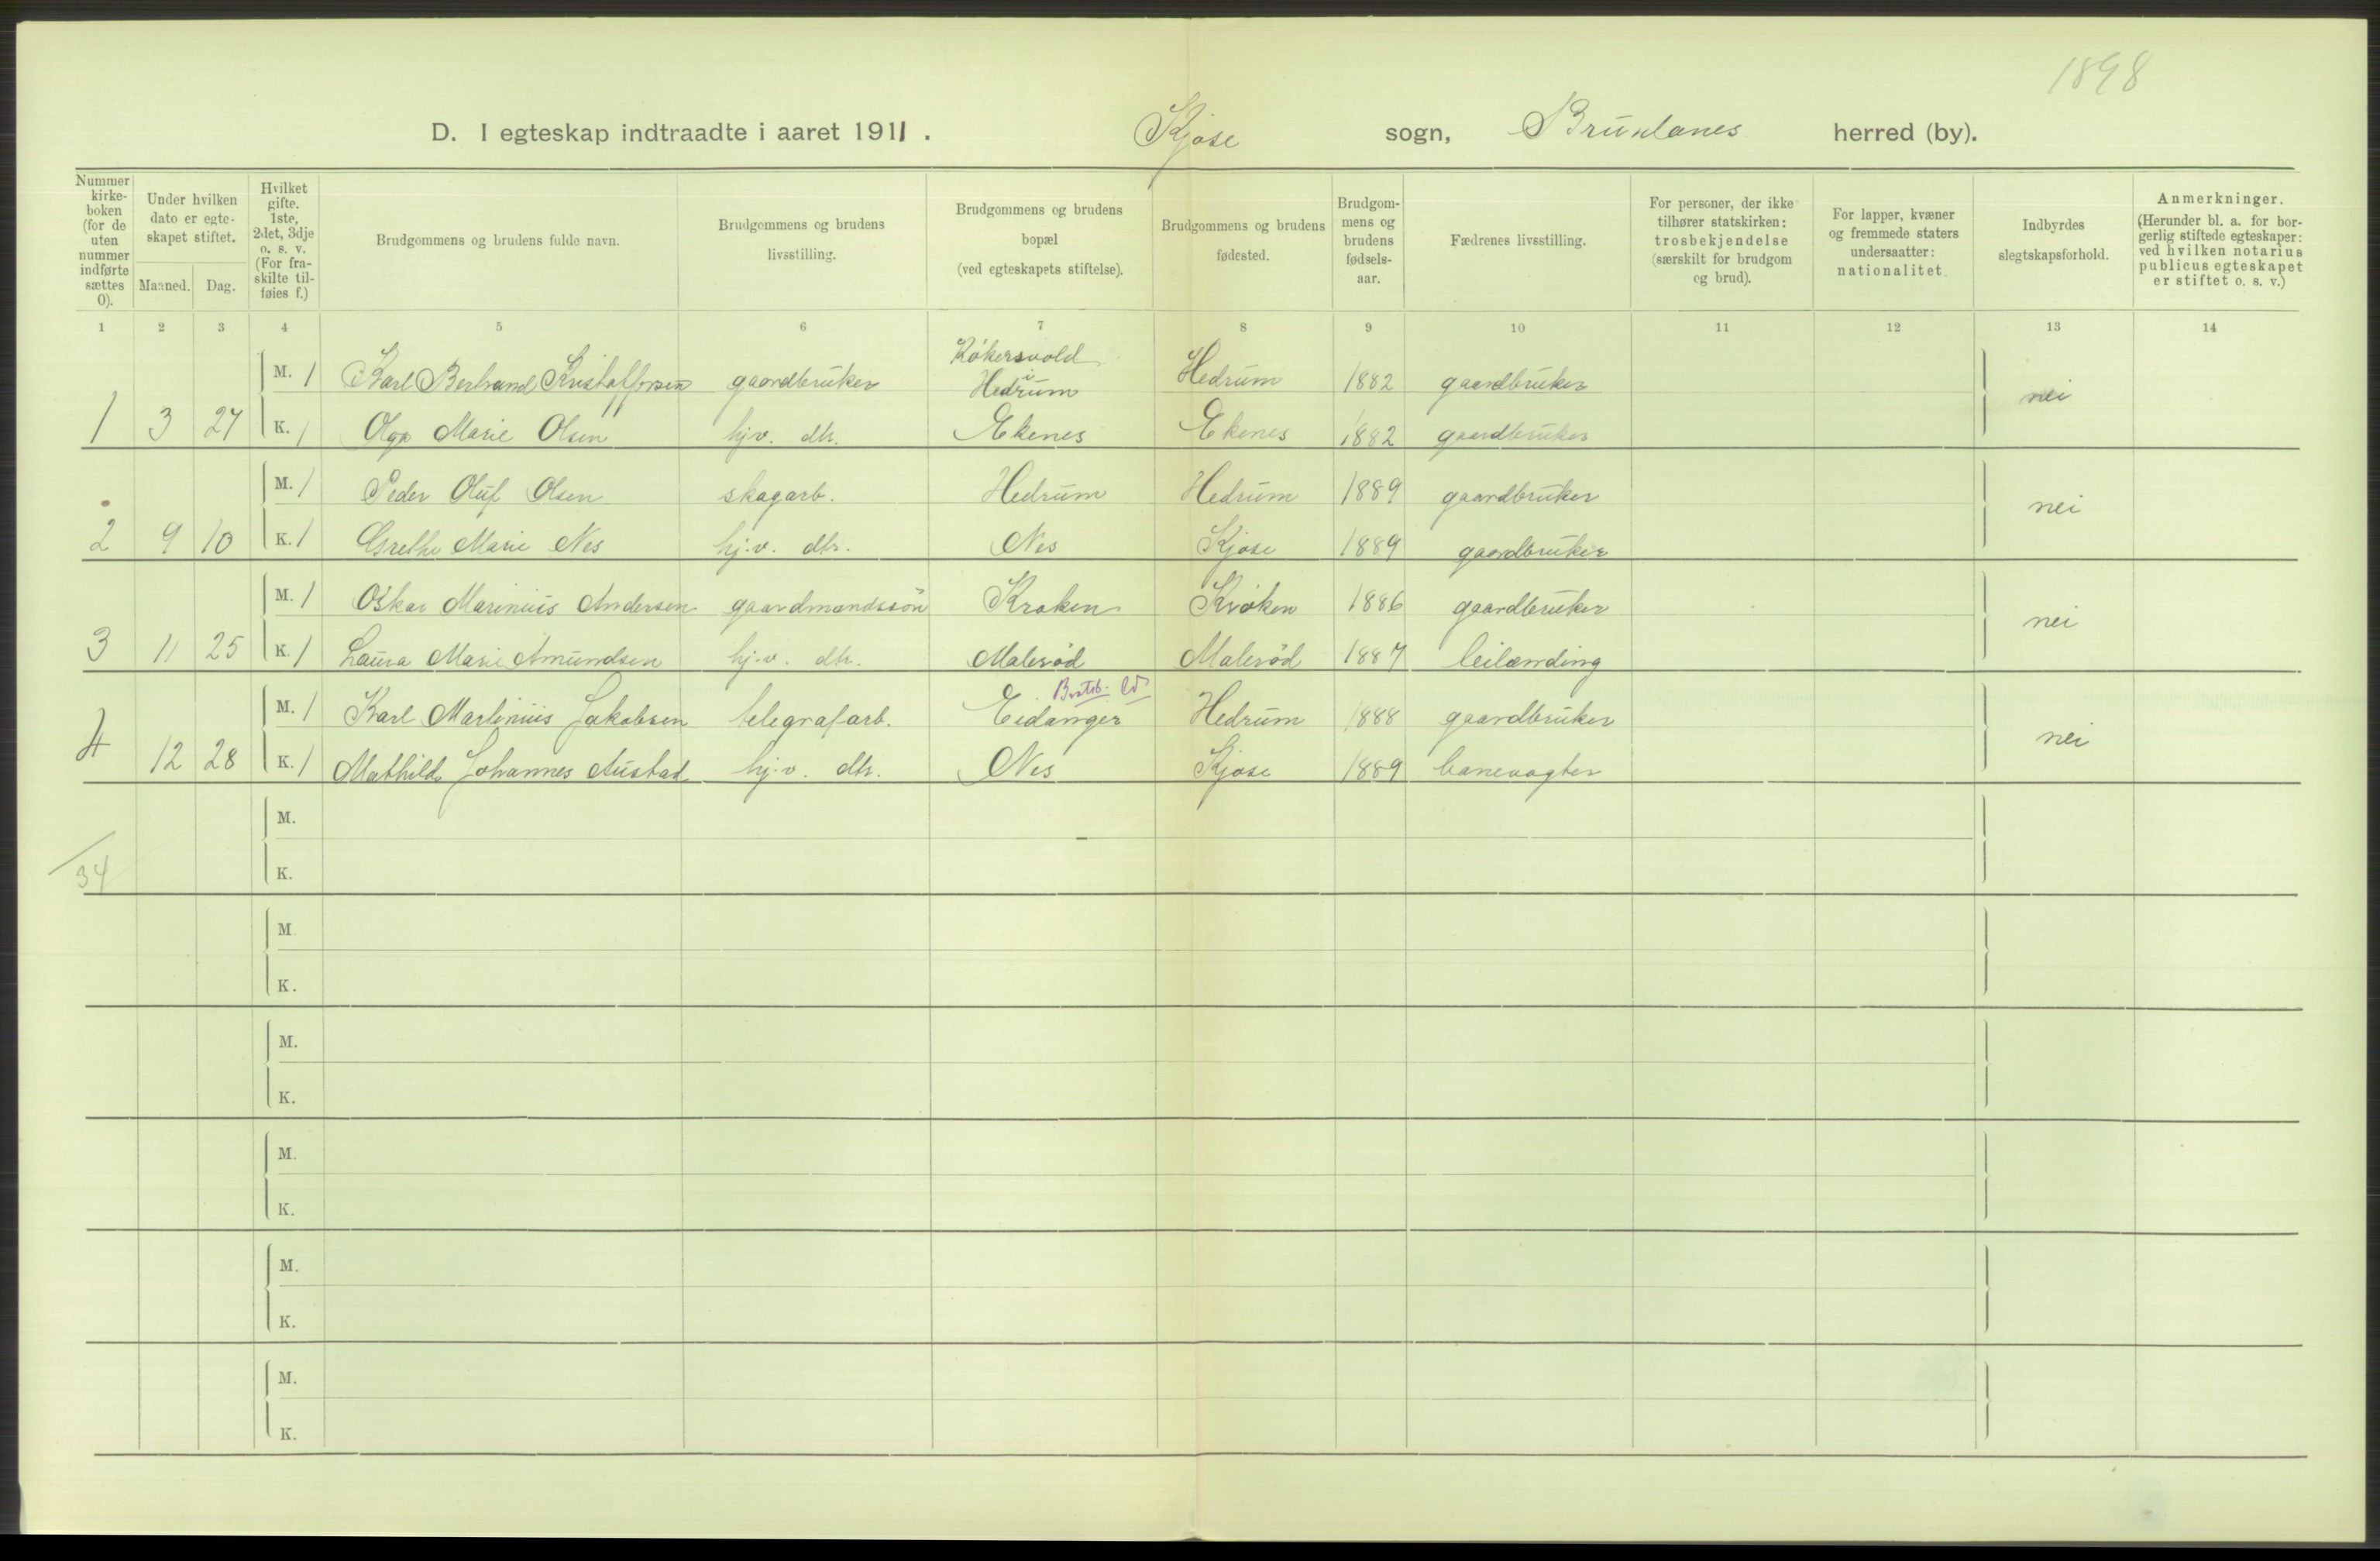 1898
D. I egteskap indtraadte i aaret 1911. Kjose sogn, Brunlanes herred (by).
Nummer kirke- boken (for de uten nummer indførte sættes 0).
Under hvilken dato er egte- skapet stiftet.
Maaned. Dag.
Hvilket gifte. 1ste, 2det, 3dje o. s. v. (For fra- skilte til- føies f.)
Brudgommens og brudens fulde navn.
Brudgommens og brudens livsstilling.
Brudgommens og brudens bopæl (ved egteskapets stiftelse).
Brudgommens og brudens fødested.
Brudgom- mens og brudens fødsels- aar.
Fædrenes livsstilling.
For personer, der ikke tilhører statskirken: trosbekjendelse (særskilt for brudgom og brud).
For lapper, kvæner og fremmede staters undersaatter: nationalitet.
Indbyrdes slegtskapsforhold.
Anmerkninger. (Herunder bl. a. for bor- gerlig stiftede egteskaper: ved hvilken notarius publicus egteskapet er stiftet o. s. v.)
1 2 3 4 5 6 7 8 9 10 11 12 13 14
M. 1 Karl Bertrand Kristoffersen gaardbruker Kökersvold i Hedrum Hedrum 1882 gaardbruker nei
1 3 27 K. 1 Olga Marie Olsen hjv. dtr. Ekenes Ekenes 1882 gaardbruker
M. 1 Peder Oluf Olsen skogarb. Hedrum Hedrum 1889 gaardbruker nei
2 9 10 K. 1 Grethe Marie Nes hj.v. dtr. Nes Kjose 1889 gaardbruker
M. 1 Oskar Marinius Andersen gaardmandssön Kroken Kroken 1886 gaardbruker nei
3 11 25 K. 1 Laura Marie Amundsen hj.v. dtr. Malerød Malerød 1887 leilænding
Bratsb.
M. 1 Karl Martinius Jakobsen telegrafarb. Eidanger Hedrum 1888 gaardbruker nei
4 12 28 K. 1 Mathilde Johannes Austad hj.v. dtr. Nes Kjose 1889 banevogter
M.
34
K.
M.
K.
M.
K.
M.
K.
M.
K.
M.
K.